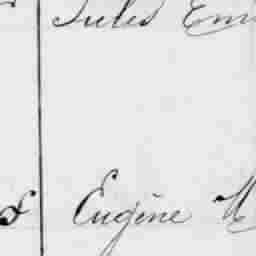 Jules Em
Eugène M